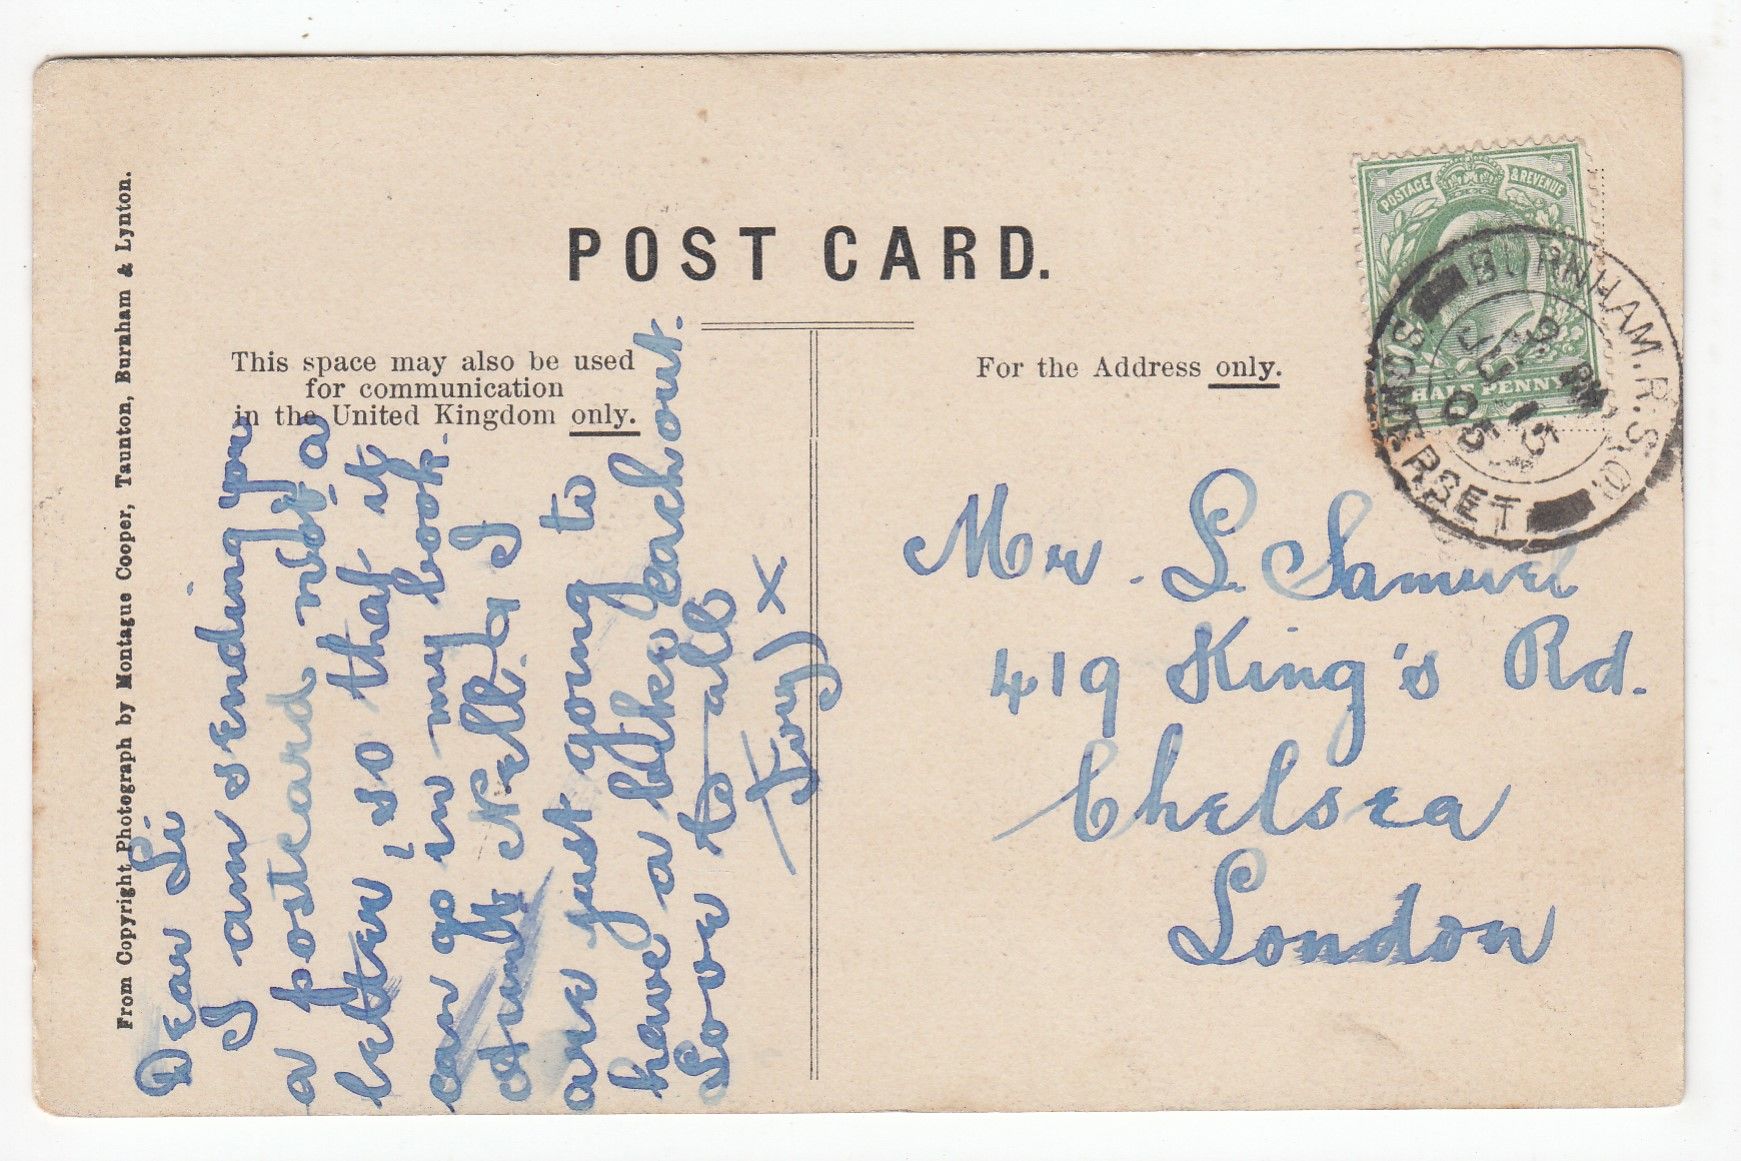 From Copyright Photograph by Montague Cooper, Taunton, Burnham & Lynton.
POST CARD.
This space may also be used
for communication
in the United Kingdom only.
For the Address only.
POSTAGE & REVENUE
HALF PENNY
BURNHAM.R.S.O.
SOMERSET
JU 15
05
Dear Li
I am sending you
a postcard not a
letter, so that it
can go in my book.
Aunt Nell & I
are just going to
have a bathe each
out.
Love to all
Ivy x
Mr. L. Samuel
419 King's Rd.
Chelsea
London